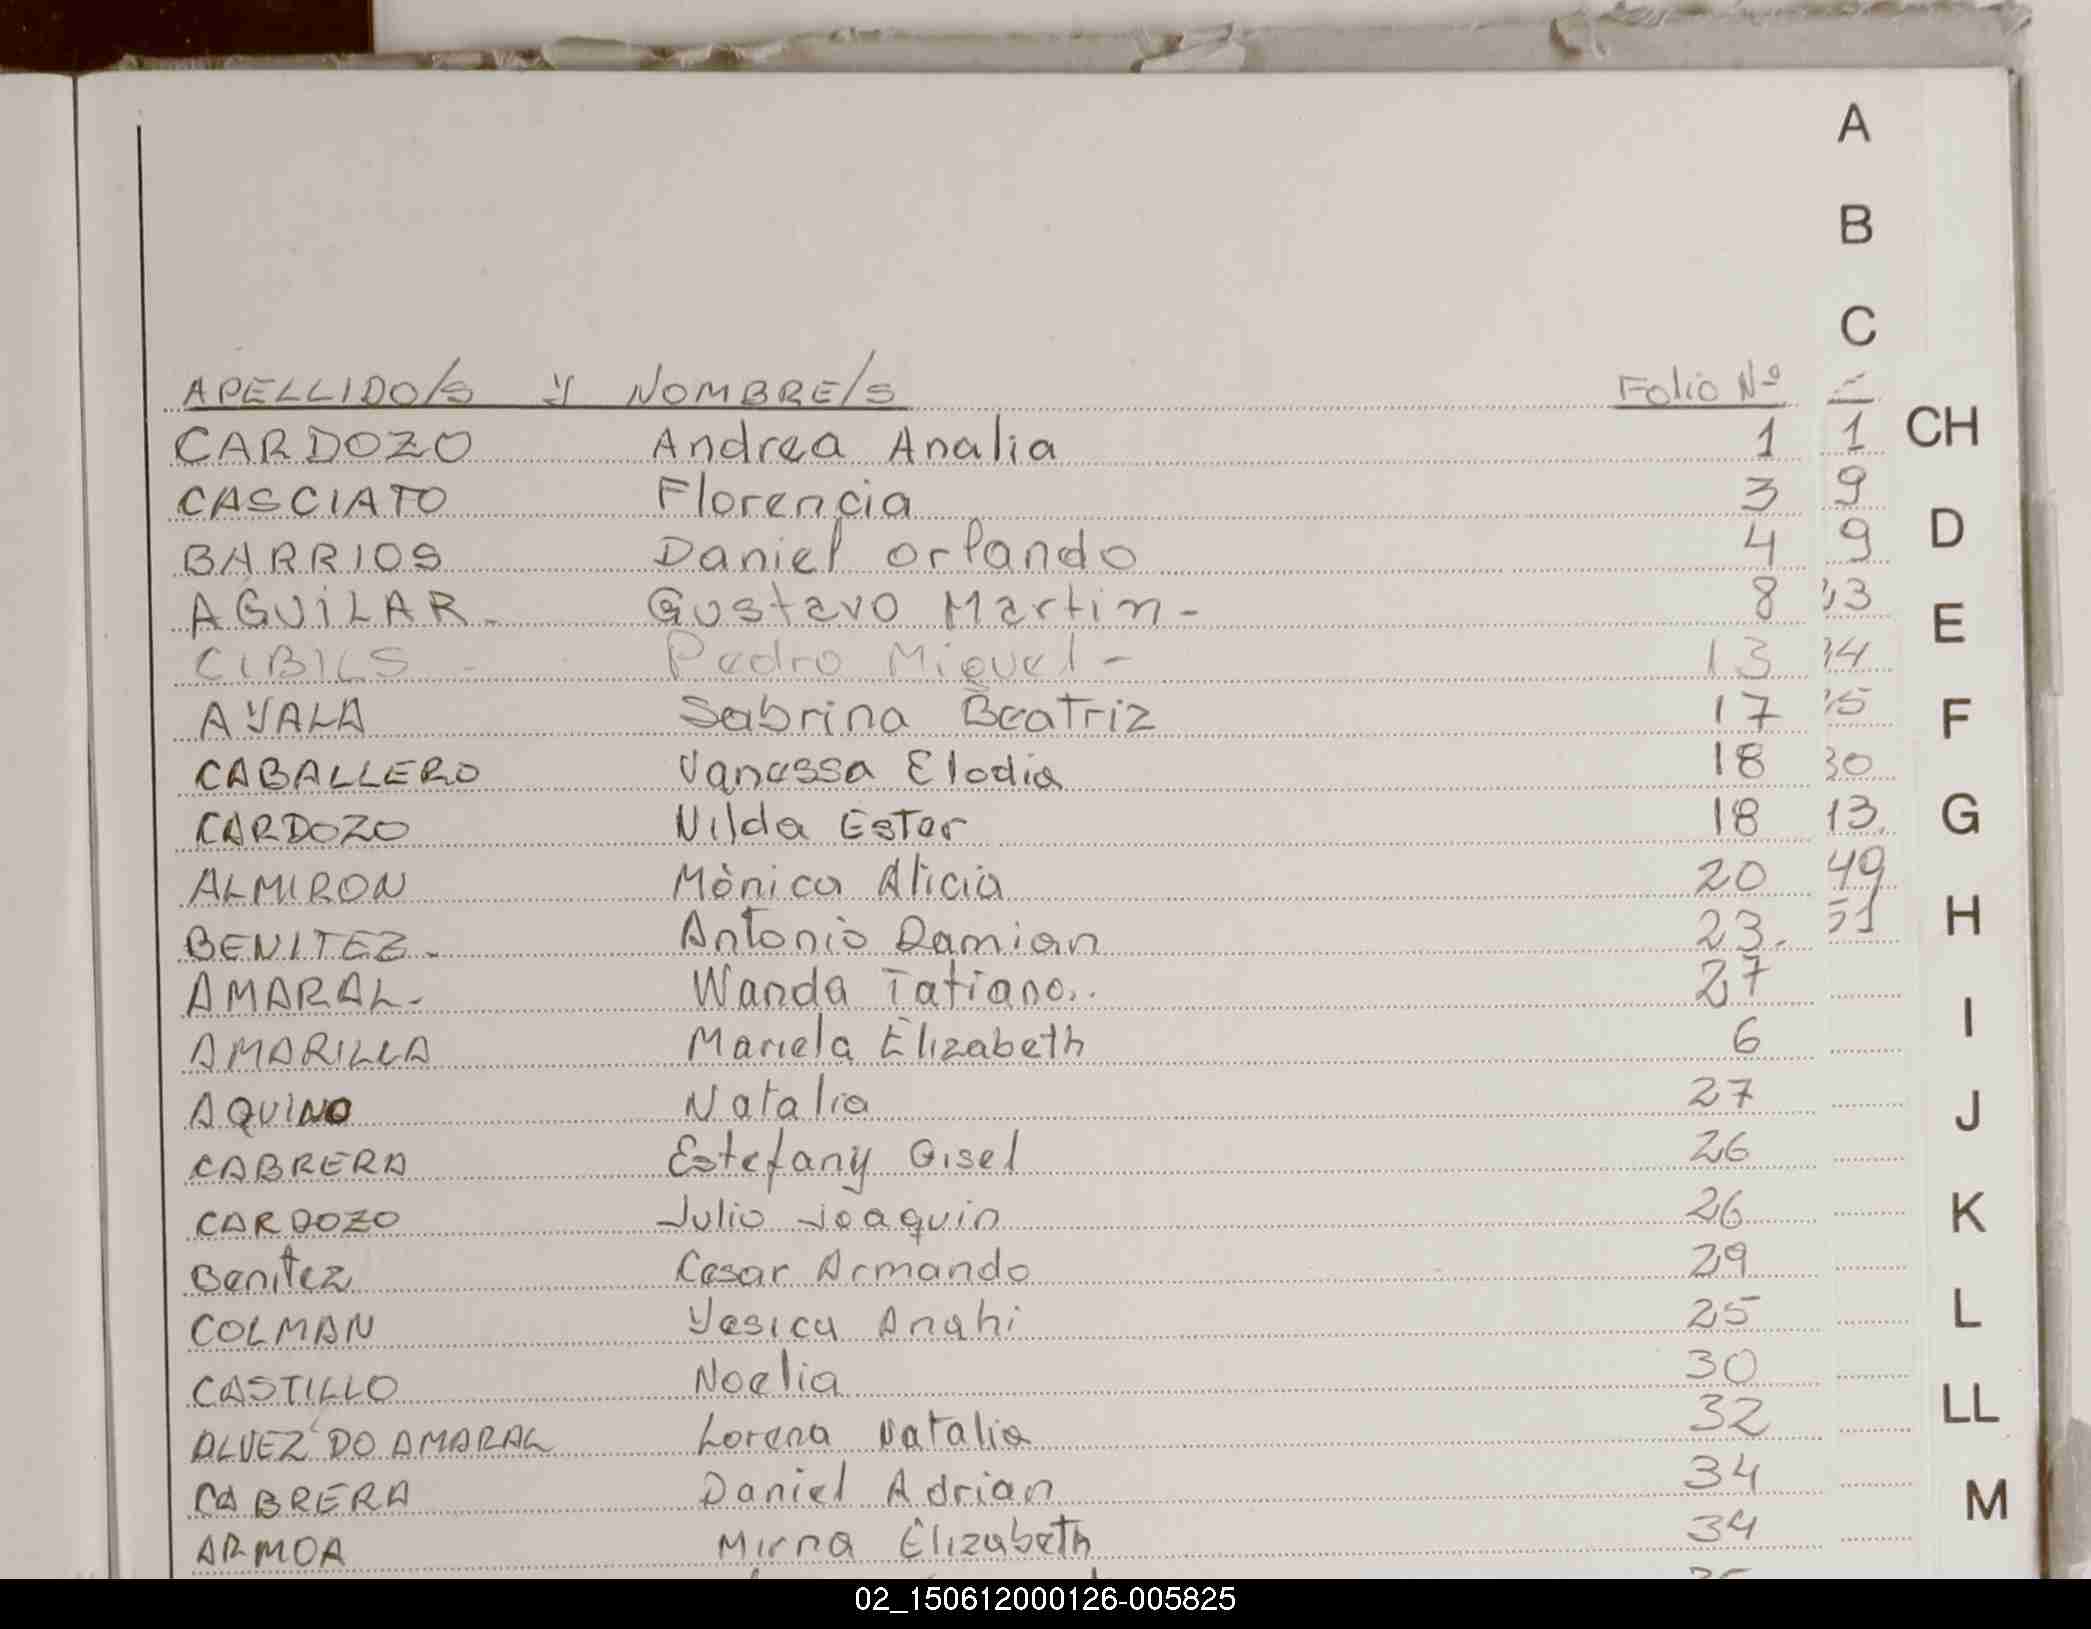 A
B
C
APELLIDO/S Y NOMBRE/S Folio Nº
CARDOZO Andrea Analia 1 1 CH
CASCIATO Florencia 3 9
BARRIOS Daniel Orlando 4 9 D
AGUILAR. Gustavo Martin- 8 13 E
CIBILS - Pedro Miguel- 13
AYALA Sabrina Beatriz 17 F
CABALLERO Vanessa Elodia 18 30
CARDOZO Nilda Ester 18 13. G
ALMIRON Mònica Alicia 20 49
BENITEZ. Antonio Damian 23. 51 H
AMARAL- Wanda Tatiana.. 27 I
AMARILLA Mariela Elizabeth 6
AQUINO Natalia 27 J
CABRERA Estefany Gisel 26
CARDOZO Julio Joaquin 26 K
Benitez Cesar Armando 29
COLMAN Yesica Anahi 25 L
CASTILLO Noelia 30
ALVEZ DO AMARAL Lorena Natalia 32 LL
CABRERA Daniel Adrian 34 M
ARMOA Mirna Elizabeth 34
02_150612000126-005825